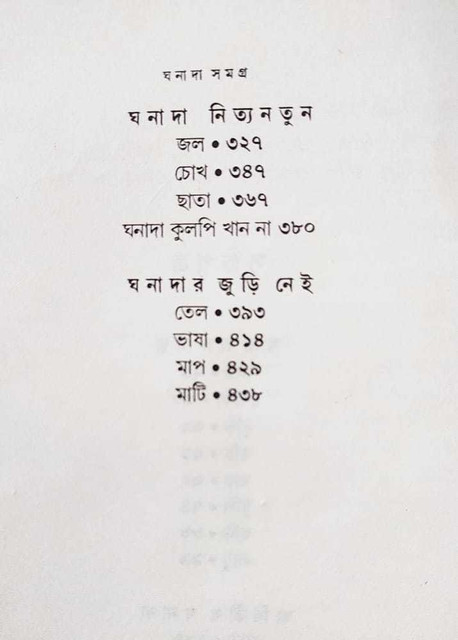 ঘনাদা সমগ্র
ঘনাদা নিত্যনতুন
জল • ৩২৭
চোখ • ৩৪৭
ছাতা • ৩৬৭
ঘনাদা কুলপি খান না ৩৮০
ঘনাদার জুড়ি নেই
তেল • ৩৯৩
ভাষা • ৪১৪
মাপ • ৪২৯
মাটি • ৪৩৮